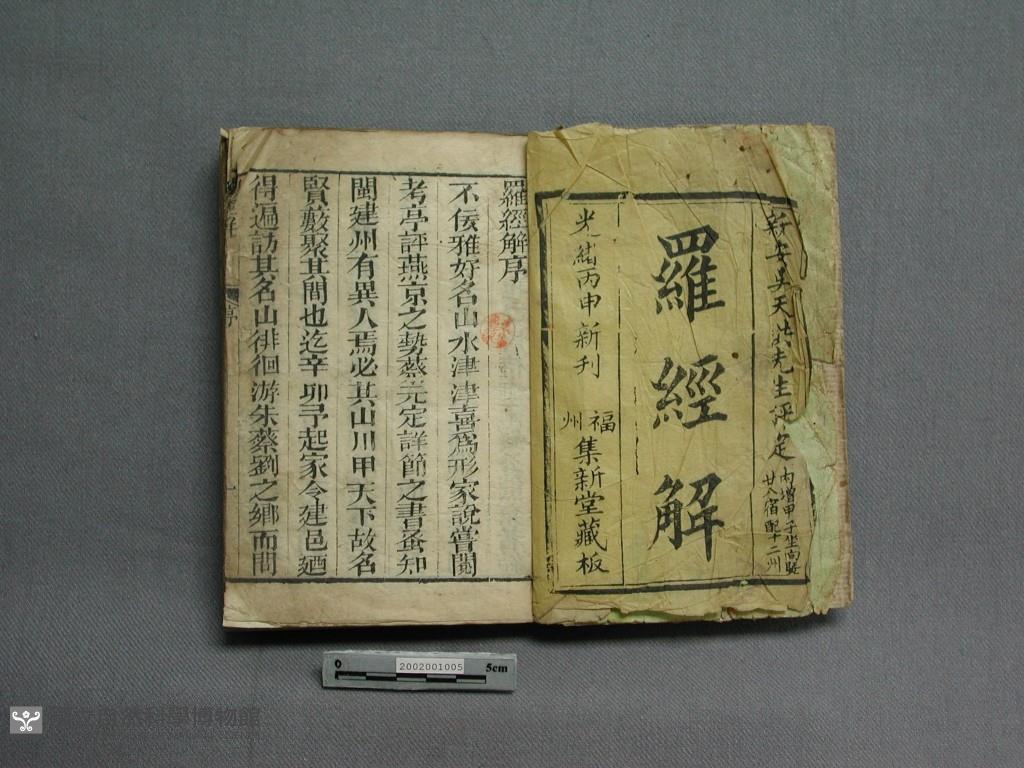 新安吳天洪先生評定
內增甲子坐向騐
廿八宿配十二州
羅經解
光緒丙申新刊
福州
集新堂藏板
羅經解序
不佞雅好名山水津津喜爲形家說嘗閱
考亭評燕京之勢蔡元定詳節之書蚤知
閩建州有異人焉必其山川甲天下故名
賢藪聚其間也迄辛卯予起家令建邑廼
得遍訪其名山徘徊游朱蔡劉之鄉而問
序
一
0
2002001005
5cm
國立自然科學博物館